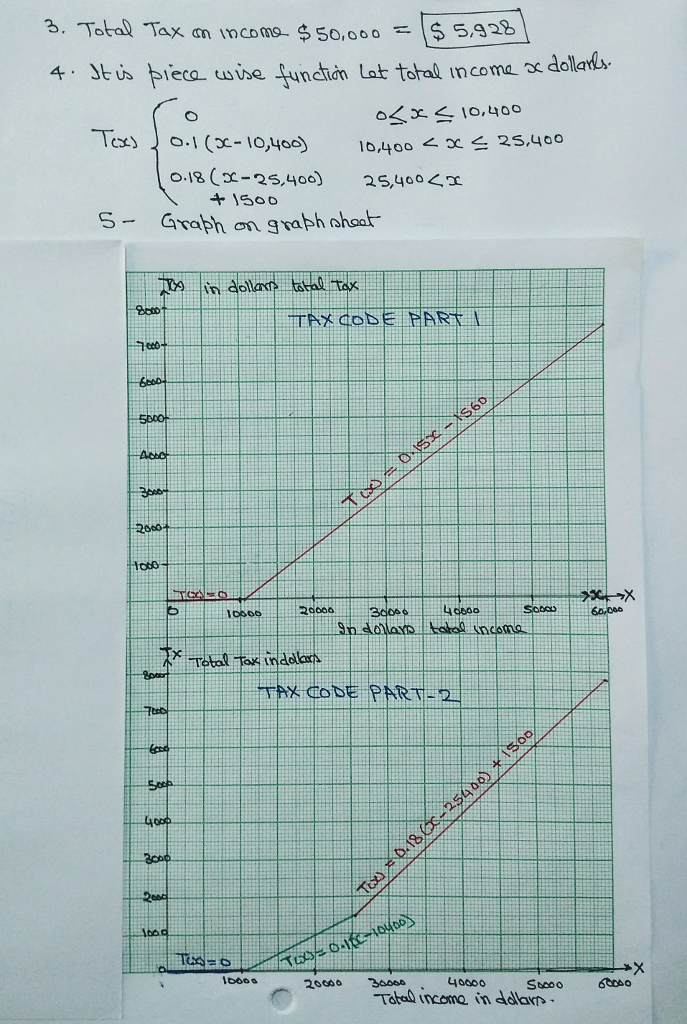 3. Total Tax on income $50,000 = $ 5,928
4. It is piece wise function Let total income x dollars.
T(x) { 0 0≤x ≤ 10,400
0.1 (x-10,400) 10,400 < x ≤ 25,400
0.18 (x-25,400) 25,400<x
+ 1500
5- Graph on graph sheet
T(x) in dollars total Tax
TAX CODE PART 1
8000
7000
6000
5000
4000
3000
2000
1000
T(x) = 0.15x - 1560
T(x)=0
0 10000 20000 30000 40000 50000 60,000
X
In dollars total income
Tx Total Tax in dollars
TAX CODE PART-2
8000
7000
6000
5000
4000
3000
2000
1000
0
T(x) = 0.18(x-25400) + 1500
T(x)=0.1(x-10400)
T(x)=0
10000 20000 30000 40000 50000 60000
X
Total income in dollars.